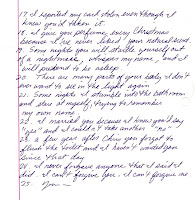 17. I reported my car stolen even though I
knew you'd taken it.
18. I give you perfume every Christmas
because I've never liked your natural scent.
19. Some nights you will startle yourself out
of a nightmare, whisper my name, and I
will pretend to be asleep.
20. There are many parts of your body I don't
ever want to see in the light again.
21. Some nights I stumble into the bathroom
and stare at myself, trying to remember
my own name.
22. I married you because I knew you'd say
"yes" and I couldn't take another "no".
23. A few year after Chris you forgot to
flush the toilet and I haven't wanted you
since that day.
24. I never forgave anyone that I said I
did. I can't forgive you. I can't forgive me
25. You —